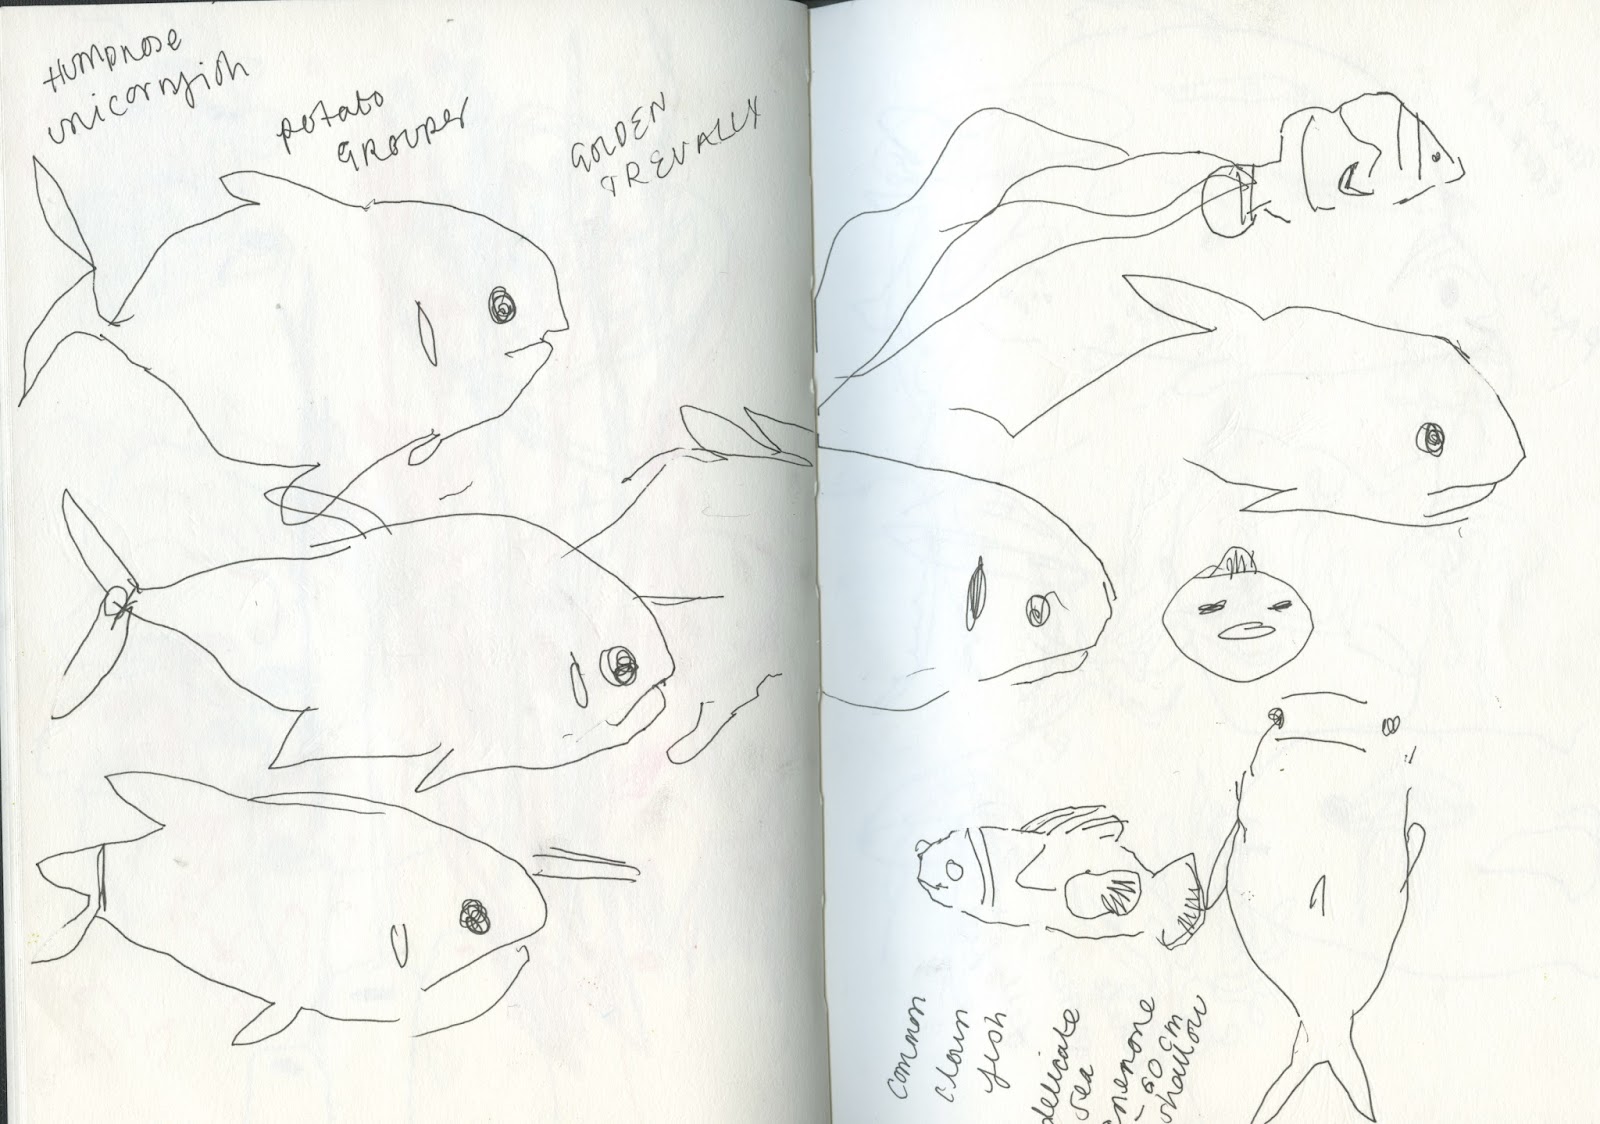 HUMPNOSE
unicornfish
potato
GROUPER
GOLDEN
TREVALLY
common
clown
fish
delicate
sea
anemone
- 50 cm
shallow